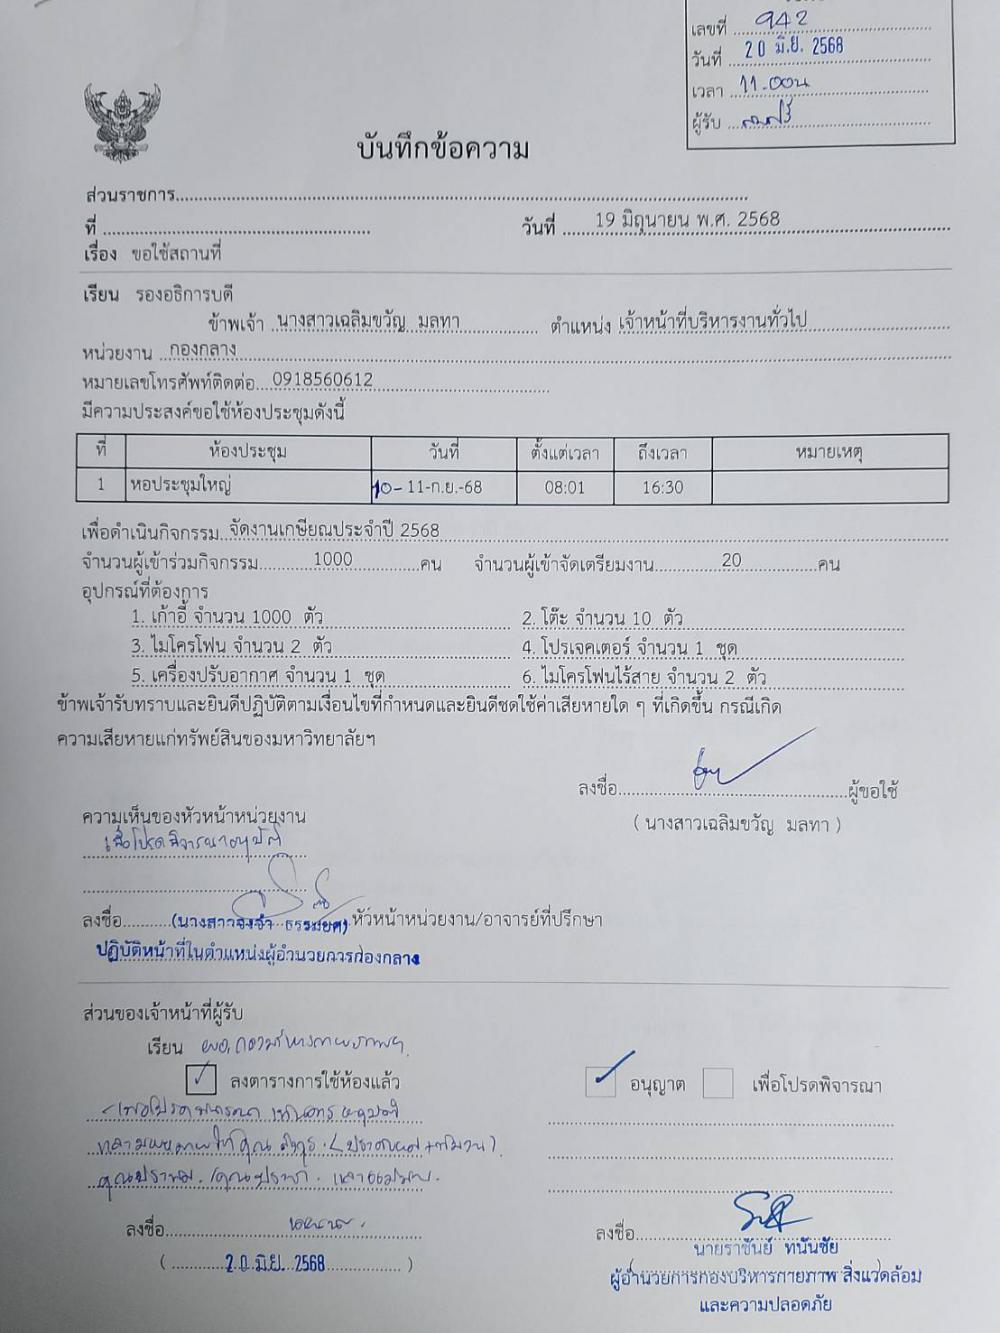 เลขที่ 942
วันที่ 20 มิ.ย. 2568
เวลา 11.00น
ผู้รับ
บันทึกข้อความ
ส่วนราชการ
ที่ วันที่ 19 มิถุนายน พ.ศ. 2568
เรื่อง ขอใช้สถานที่
เรียน รองอธิการบดี
ข้าพเจ้า นางสาวเฉลิมขวัญ มลทา ตำแหน่ง เจ้าหน้าที่บริหารงานทั่วไป
หน่วยงาน กองกลาง
หมายเลขโทรศัพท์ติดต่อ 0918560612
มีความประสงค์ขอใช้ห้องประชุมดังนี้
ที่ ห้องประชุม วันที่ ตั้งแต่เวลา ถึงเวลา หมายเหตุ
1 หอประชุมใหญ่ 10-11-ก.ย.-68 08:01 16:30
เพื่อดำเนินกิจกรรม จัดงานเกษียณประจำปี 2568
จำนวนผู้เข้าร่วมกิจกรรม 1000 คน จำนวนผู้เข้าจัดเตรียมงาน 20 คน
อุปกรณ์ที่ต้องการ
1. เก้าอี้ จำนวน 1000 ตัว 2. โต๊ะ จำนวน 10 ตัว
3. ไมโครโฟน จำนวน 2 ตัว 4. โปรเจคเตอร์ จำนวน 1 ชุด
5. เครื่องปรับอากาศ จำนวน 1 ชุด 6. ไมโครโฟนไร้สาย จำนวน 2 ตัว
ข้าพเจ้ารับทราบและยินดีปฏิบัติตามเงื่อนไขที่กำหนดและยินดีชดใช้ค่าเสียหายใด ๆ ที่เกิดขึ้น กรณีเกิด
ความเสียหายแก่ทรัพย์สินของมหาวิทยาลัยฯ
ลงชื่อ ผู้ขอใช้
( นางสาวเฉลิมขวัญ มลทา )
ความเห็นของหัวหน้าหน่วยงาน
เพื่อโปรดพิจารณาอนุมัติ
ลงชื่อ (นางสาว หัวหน้าหน่วยงาน/อาจารย์ที่ปรึกษา
ปฏิบัติหน้าที่ในตำแหน่งผู้อำนวยการกองกลาง
ส่วนของเจ้าหน้าที่ผู้รับ
เรียน
ลงตารางการใช้ห้องแล้ว
อนุญาต เพื่อโปรดพิจารณา
ลงชื่อ
20 มิ.ย. 2568
ลงชื่อ
นายราชันย์ ทนันชัย
ผู้อำนวยการกองบริหารกายภาพ สิ่งแวดล้อม
และความปลอดภัย